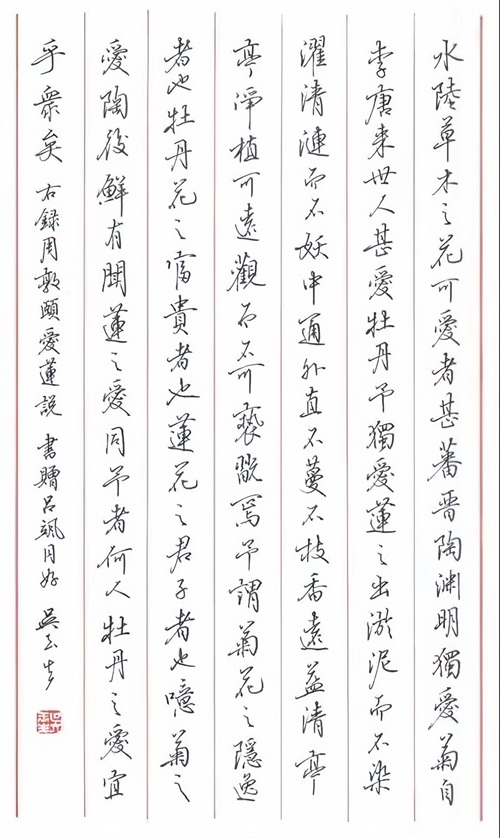 水陸草木之花可愛者甚蕃晋陶淵明獨愛菊自
李唐来世人甚愛牡丹予獨愛蓮之出淤泥而不染
濯清漣而不妖中通外直不蔓不枝香遠益清亭
亭淨植可遠觀而不可褻翫焉予謂菊花之隱逸
者也牡丹花之富貴者也蓮花之君子者也噫菊之
愛陶後鮮有聞蓮之愛同予者何人牡丹之愛宜
乎衆矣 右録周敦頤愛蓮説 書贈吕颯同好 吴玉生